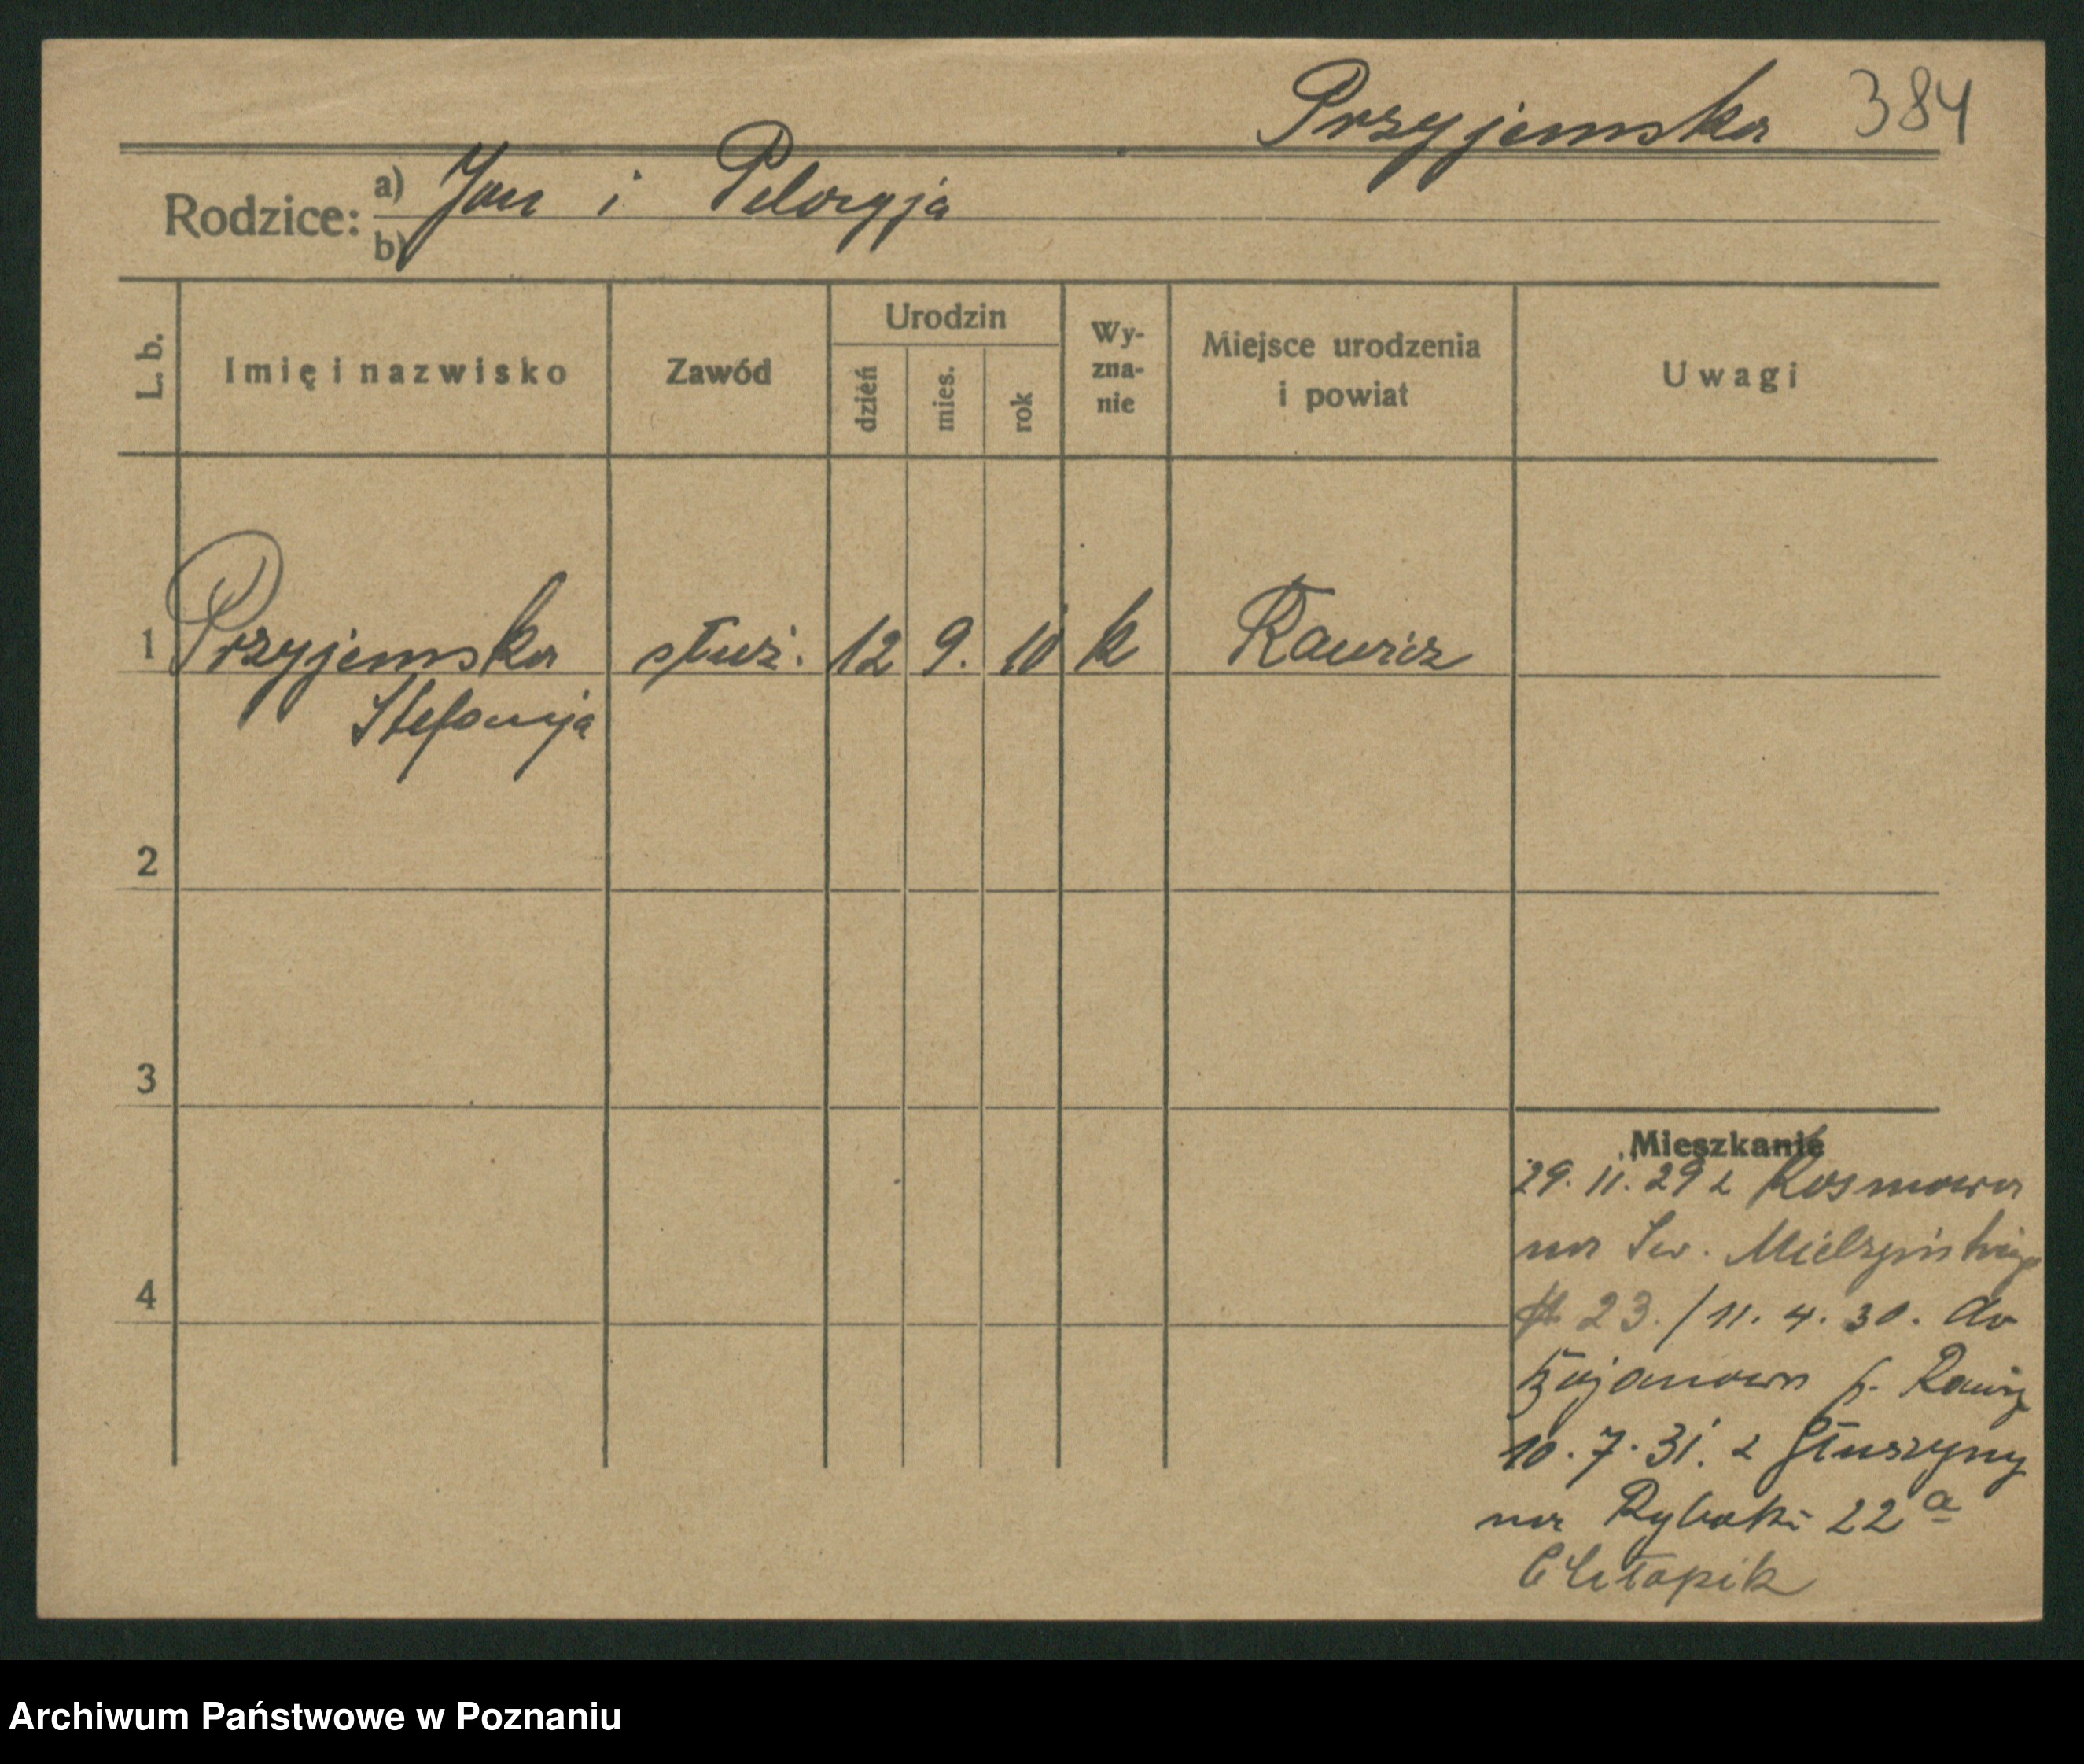 Przyjemska 384
Rodzice: a) Jan i Pelagja
b)
L. b.
Imię i nazwisko
Zawód
Urodzin
dzień
mies.
rok
Wy-
zna-
nie
Miejsce urodzenia
i powiat
Uwagi
1 Przyjemska służ. 12 9. 10 k Rawicz
Stefanja
2
3
4
Mieszkanie
29. 11. 29 z Kosmowa
na Sew. Mielżyńskiego
23. / 11. 4. 30. do
Bojanowa p. Rawicz
10. 7. 31. z Głuszyny
na Rybaki 22a
Chłapik
Archiwum Państwowe w Poznaniu